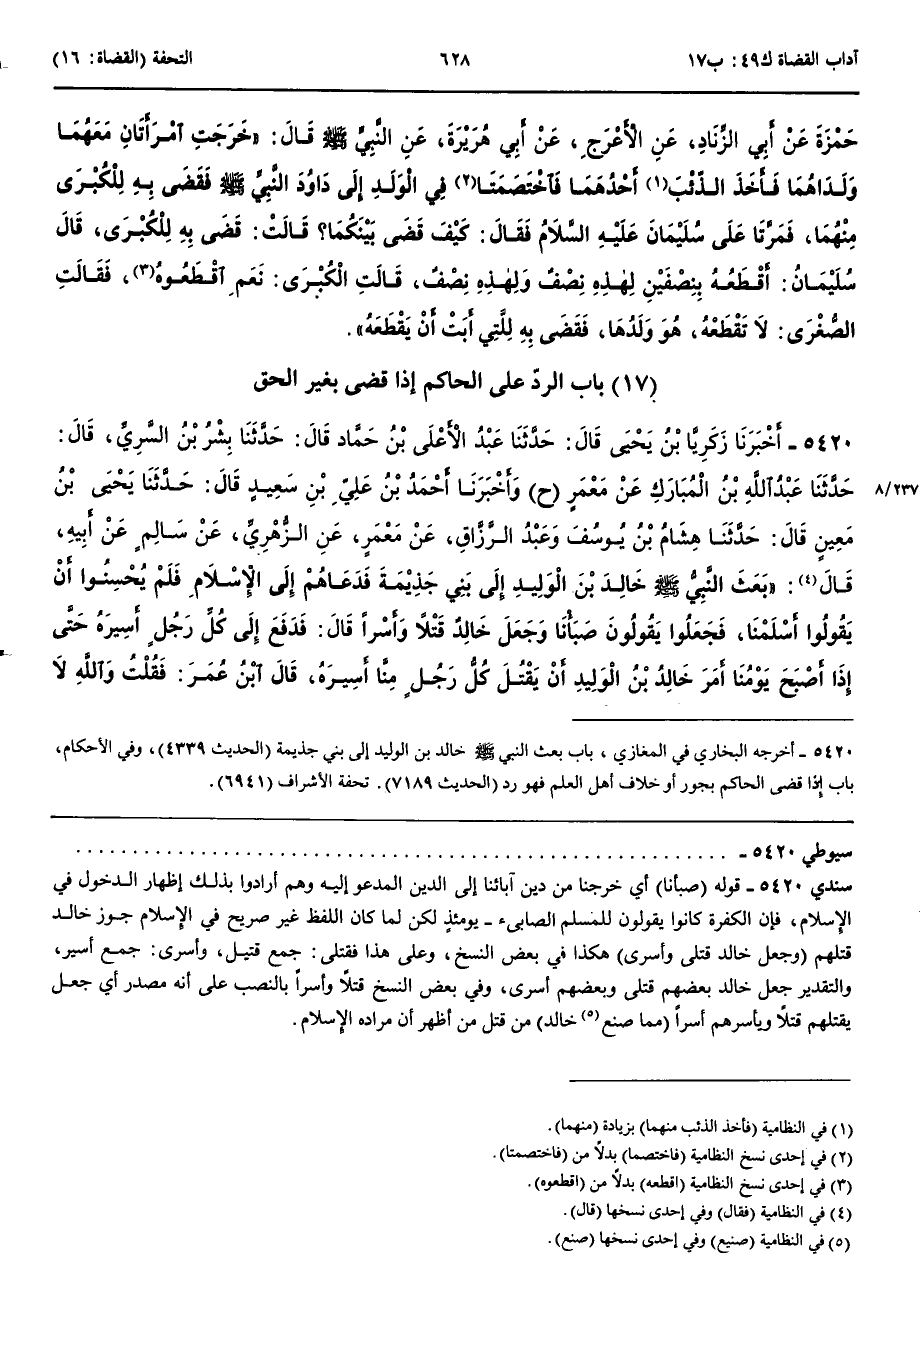 آداب القضاة ك٤٩: ب١٧ ٦٢٨ التحفة (القضاة: ١٦)
حَمْزَةَ عَنْ أَبِي الزِّنَادِ، عَنِ الْأَعْرَجِ، عَنْ أَبِي هُرَيْرَةَ، عَنِ النَّبِيِّ ﷺ قَالَ: «خَرَجَتِ ٱمْرَأَتَانِ مَعَهُمَا
وَلَدَاهُمَا فَأَخَذَ الذِّئْبَ(١) أَحَدُهُمَا فَٱخْتَصَمَتَا(٢) فِي الْوَلَدِ إِلَى دَاوُدَ النَّبِيِّ ﷺ فَقَضَى بِهِ لِلْكُبْرَى
مِنْهُمَا، فَمَرَّتَا عَلَى سُلَيْمَانَ عَلَيْهِ السَّلَامُ فَقَالَ: كَيْفَ قَضَى بَيْنَكُمَا؟ قَالَتْ: قَضَى بِهِ لِلْكُبْرَى، قَالَ
سُلَيْمَانُ: أَقْطَعُهُ بِنِصْفَيْنِ لِهٰذِهِ نِصْفٌ وَلِهٰذِهِ نِصْفٌ، قَالَتِ الْكُبْرَى: نَعَمِ ٱقْطَعُوهُ(٣)، فَقَالَتِ
الصُّغْرَى: لَا تَقْطَعْهُ، هُوَ وَلَدُهَا، فَقَضَى بِهِ لِلَّتِي أَبَتْ أَنْ يَقْطَعَهُ».
(١٧) باب الردّ على الحاكم إذا قضى بغير الحق
٥٤٢٠ ـ أَخْبَرَنَا زَكَرِيَّا بْنُ يَحْيَى قَالَ: حَدَّثَنَا عَبْدُ الْأَعْلَى بْنُ حَمَّاد قَالَ: حَدَّثَنَا بِشْرُ بْنُ السَّرِيِّ، قَالَ:
حَدَّثَنَا عَبْدُٱللَّهِ بْنُ الْمُبَارَكِ عَنْ مَعْمَرٍ (ح) وَأَخْبَرَنَا أَحْمَدُ بْنُ عَلِيِّ بْنِ سَعِيدٍ قَالَ: حَدَّثَنَا يَحْيَى بْنُ ٨/٢٣٧
مَعِينٍ قَالَ: حَدَّثَنَا هِشَامُ بْنُ يُوسُفَ وَعَبْدُ الرَّزَّاقِ، عَنْ مَعْمَرٍ، عَنِ الزُّهْرِيِّ، عَنْ سَالِمٍ عَنْ أَبِيهِ،
قَالَ(٤): «بَعَثَ النَّبِيُّ ﷺ خَالِدَ بْنَ الْوَلِيدِ إِلَى بَنِي جَذِيمَةَ فَدَعَاهُمْ إِلَى الْإِسْلَامِ فَلَمْ يُحْسِنُوا أَنْ
يَقُولُوا أَسْلَمْنَا، فَجَعَلُوا يَقُولُونَ صَبَأْنَا وَجَعَلَ خَالِدٌ قَتْلًا وَأَسْراً قَالَ: فَدَفَعَ إِلَى كُلِّ رَجُلٍ أَسِيرَهُ حَتَّى
إِذَا أَصْبَحَ يَوْمُنَا أَمَرَ خَالِدُ بْنُ الْوَلِيدِ أَنْ يَقْتُلَ كُلُّ رَجُلٍ مِنَّا أَسِيرَهُ، قَالَ ٱبْنُ عُمَرَ: فَقُلْتُ وَٱللَّهِ لَا
٥٤٢٠ ـ أخرجه البخاري في المغازي، باب بعث النبي ﷺ خالد بن الوليد إلى بني جذيمة (الحديث ٤٣٣٩)، وفي الأحكام،
باب إذا قضى الحاكم بجور أو خلاف أهل العلم فهو رد (الحديث ٧١٨٩). تحفة الأشراف (٦٩٤١).
سيوطي ٥٤٢٠ ـ . . . . . . . . . . . . . . . . . . . . . . . . . . . . . .
سندي ٥٤٢٠ ـ قوله (صبأنا) أي خرجنا من دين آبائنا إلى الدين المدعو إليه وهم أرادوا بذلك إظهار الدخول في
الإسلام، فإن الكفرة كانوا يقولون للمسلم الصابىء ـ يومئذٍ لكن لما كان اللفظ غير صريح في الإسلام جوز خالد
قتلهم (وجعل خالد قتلى وأسرى) هكذا في بعض النسخ، وعلى هذا فقتلى: جمع قتيل، وأسرى: جمع أسير،
والتقدير جعل خالد بعضهم قتلى وبعضهم أسرى، وفي بعض النسخ قتلاً وأسراً بالنصب على أنه مصدر أي جعل
يقتلهم قتلاً ويأسرهم أسراً (مما صنع(٥) خالد) من قتل من أظهر أن مراده الإسلام.
(١) في النظامية (فأخذ الذئب منهما) بزيادة (منهما).
(٢) في إحدى نسخ النظامية (فاختصما) بدلاً من (فاختصمتا).
(٣) في إحدى نسخ النظامية (اقطعه) بدلاً من (اقطعوه).
(٤) في النظامية (فقال) وفي إحدى نسخها (قال).
(٥) في النظامية (صنيع) وفي إحدى نسخها (صنع).